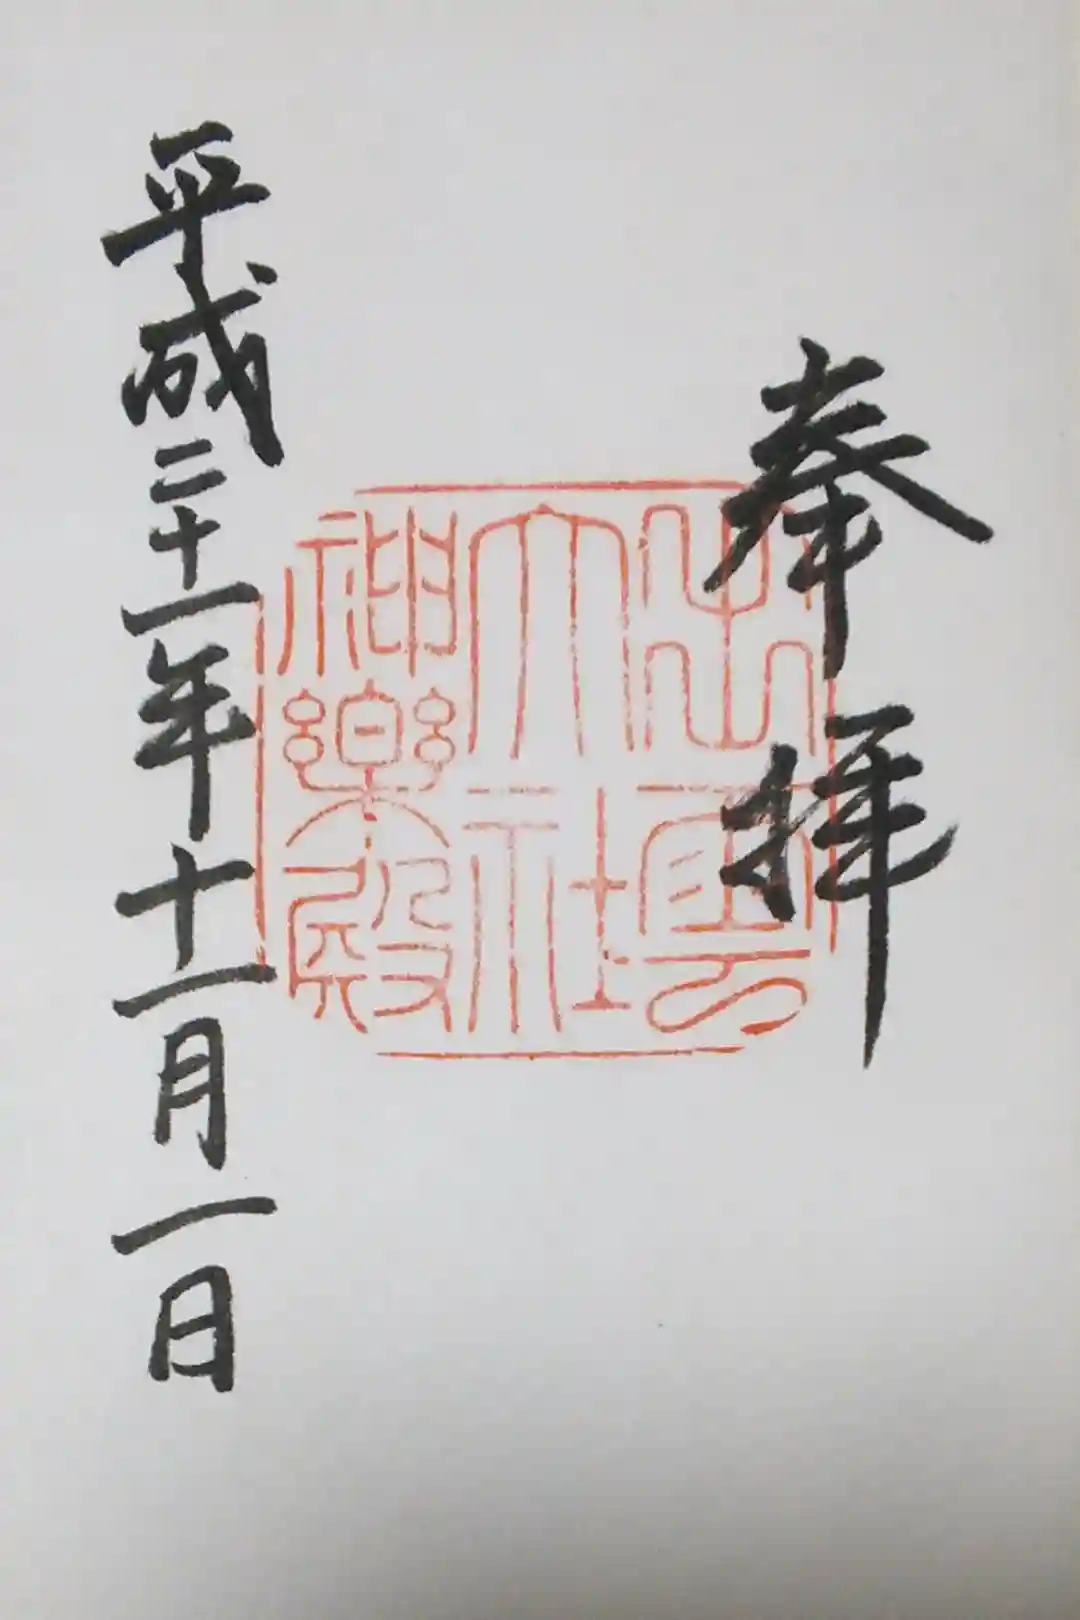 奉拝
出雲
大社
神楽殿
平成二十一年十一月一日